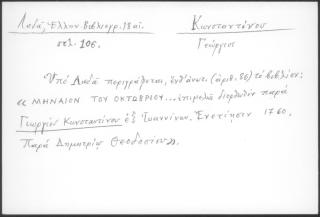 Λαδά, Ἑλλην. Βιβλιογρ. 18 αἰ.
σελ. 106.
Κωνσταντίνου
Γεώργιος
Ὑπὸ Λαδᾶ περιγράφεται, ἐνθ' ἀνωτ. (ἀριθ. 86) τὸ βιβλίον:
«ΜΗΝΑΙΟΝ ΤΟΥ ΟΚΤΩΒΡΙΟΥ... ἐπιμελῶς διορθωθὲν παρὰ
Γεωργίου Κωνσταντίνου ἐξ Ἰωαννίνων. Ἐνετίησιν 1760.
Παρὰ Δημητρίῳ Θεοδοσίου».